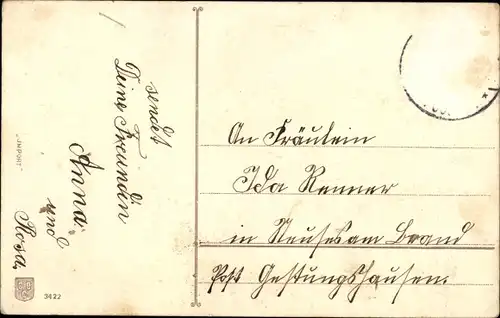 sendet
Deine Freundin
Anna
und
Rosa,
An Fräulein
Ida Renner
in Neuses am Brand
Post Gestungshausen.
"IMPORT"
3422